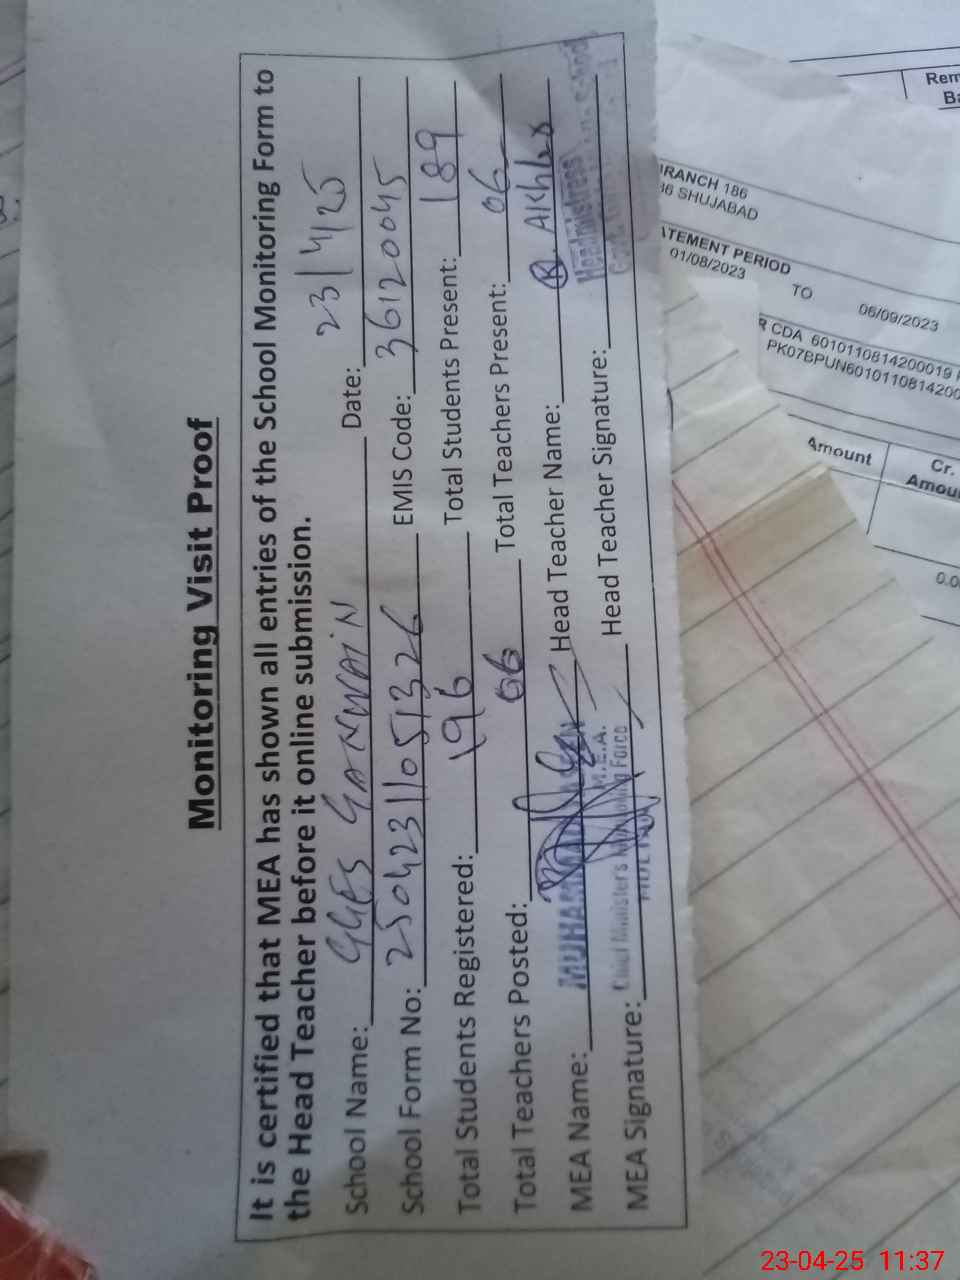 Monitoring Visit Proof
It is certified that MEA has shown all entries of the School Monitoring Form to
the Head Teacher before it online submission.
School Name: GGES GANWAIN Date: 23/4/25
School Form No: 25042311051326 EMIS Code: 36120045
Total Students Registered: 196 Total Students Present: 189
Total Teachers Posted: 06 Total Teachers Present: 06
MEA Name: MUHAMMAD Head Teacher Name: R. Akhtar
M.E.A.
Headmistress
MEA Signature: Head Teacher Signature:
Chief Minister's Monitoring Force
Rem
Ba
BRANCH 186
86 SHUJABAD
ATEMENT PERIOD
01/08/2023 TO 06/09/2023
R CDA 6010110814200019
PK07BPUN6010110814200
Amount Cr.
Amou
0.0
23-04-25 11:37